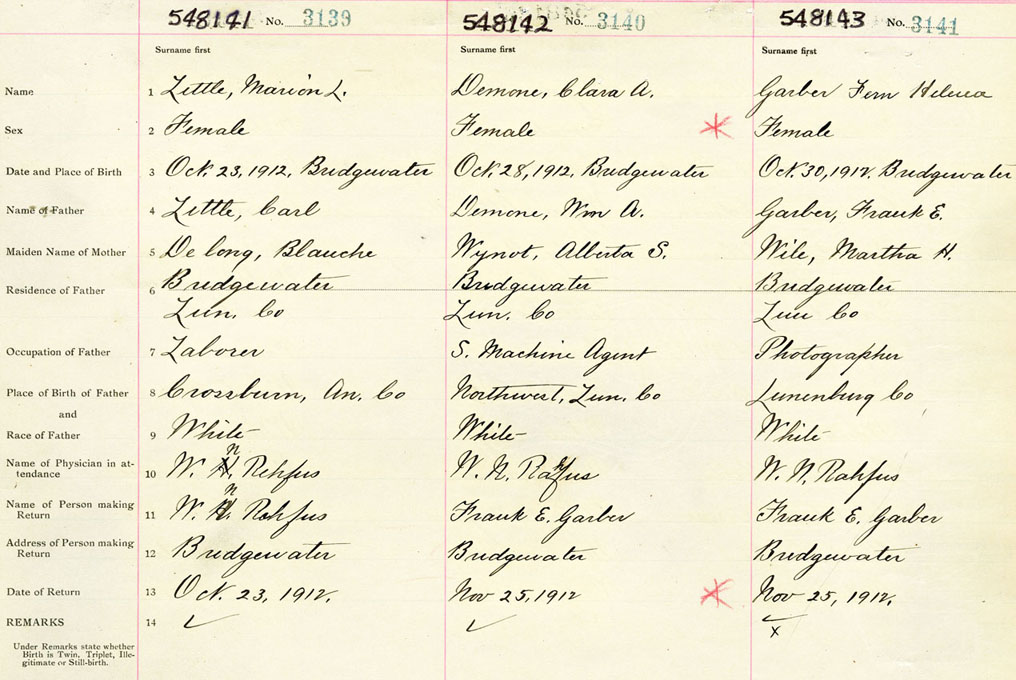 548141 No. 3139 548142 No. 3140 548143 No. 3141
Surname first Surname first Surname first
Name 1 Little, Marion L. Demone, Clara A. Garber Fern Helena
Sex 2 Female Female Female
Date and Place of Birth 3 Oct. 23, 1912, Bridgewater Oct. 28, 1912, Bridgewater Oct. 30, 1912, Bridgewater
Name of Father 4 Little, Carl Demone, Wm A. Garber, Frank E.
Maiden Name of Mother 5 Delong, Blanche Wynot, Alberta S. Wile, Martha H.
Residence of Father 6 Bridgewater Bridgewater Bridgewater
Lun. Co Lun. Co Lun Co
Occupation of Father 7 Laborer S. Machine Agent Photographer
Place of Birth of Father 8 Crossburn, An. Co Northwest, Lun. Co Lunenburg Co
and
Race of Father 9 White White White
Name of Physician in at-
tendance 10 W. N. Rehfus W. N. Rahfus W. N. Rahfus
Name of Person making
Return 11 W. N. Rehfus Frank E. Garber Frank E. Garber
Address of Person making
Return 12 Bridgewater Bridgewater Bridgewater
Date of Return 13 Oct. 23, 1912. Nov 25, 1912 Nov 25, 1912.
REMARKS 14
Under Remarks state whether
Birth is Twin, Triplet, Ille-
gitimate or Still-birth.